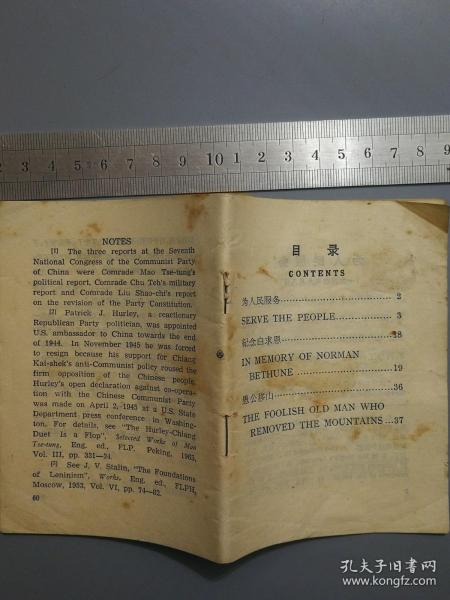 2 3 4 5 6 7 8 9 10 1 2 3 4 5 6 7 8 9
NOTES
[1] The three reports at the Seventh
National Congress of the Communist Party
of China were Comrade Mao Tse-tung's
political report, Comrade Chu Teh's military
report and Comrade Liu Shao-chi's report
on the revision of the Party Constitution.
[2] Patrick J. Hurley, a reactionary
Republican Party politician, was appointed
U.S. ambassador to China towards the end
of 1944. In November 1945 he was forced
to resign because his support for Chiang
Kai-shek's anti-Communist policy roused the
firm opposition of the Chinese people.
Hurley's open declaration against co-opera-
tion with the Chinese Communist Party
was made on April 2, 1945 at a U.S. State
Department press conference in Washing-
ton. For details, see "The Hurley-Chiang
Duet is a Flop", Selected Works of Mao
Tse-tung, Eng. ed., FLP, Peking, 1965,
Vol. III, pp. 331-34.
[3] See J. V. Stalin, "The Foundations
of Leninism", Works, Eng. ed., FLPH,
Moscow, 1953, Vol. VI, pp. 74-82.
60
目 录
CONTENTS
为人民服务 2
SERVE THE PEOPLE 3
纪念白求恩 18
IN MEMORY OF NORMAN
BETHUNE 19
愚公移山 36
THE FOOLISH OLD MAN WHO
REMOVED THE MOUNTAINS ...37
孔夫子旧书网
www.kongfz.com